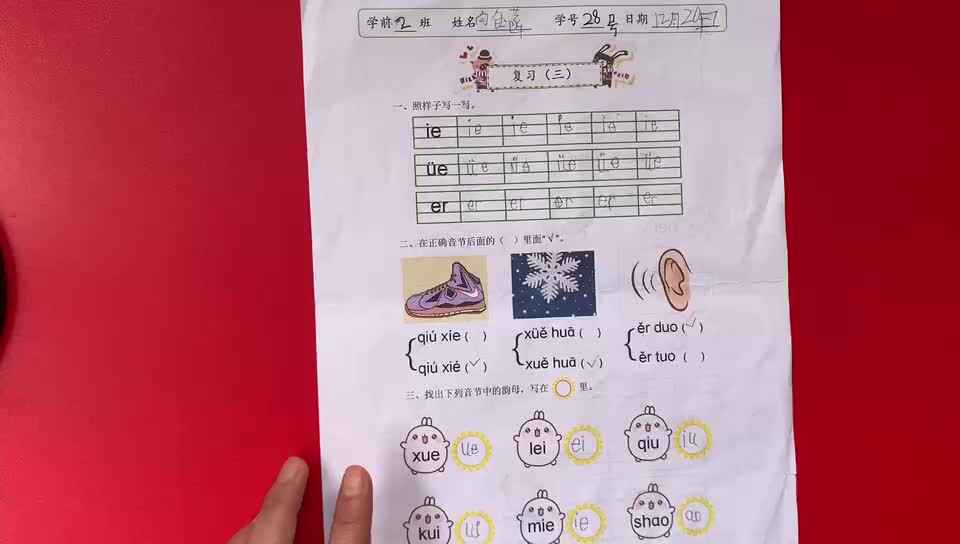 学前 2 班 姓名 学号 28号 日期 12月26日
复习（三）
一、照样子写一写。
ie ie ie ie ie ie
üe üe üe üe üe üe
er er er er er er
二、在正确音节后面的（ ）里画"√"。
qiú xíe（ ） xüě huā（ ） ěr duo（√）
qiú xié（√） xuě huā（√） ěr tuo（ ）
三、找出下列音节中的韵母，写在 里。
xue üe lei ei qiu iu
kui ui mie ie shao ao